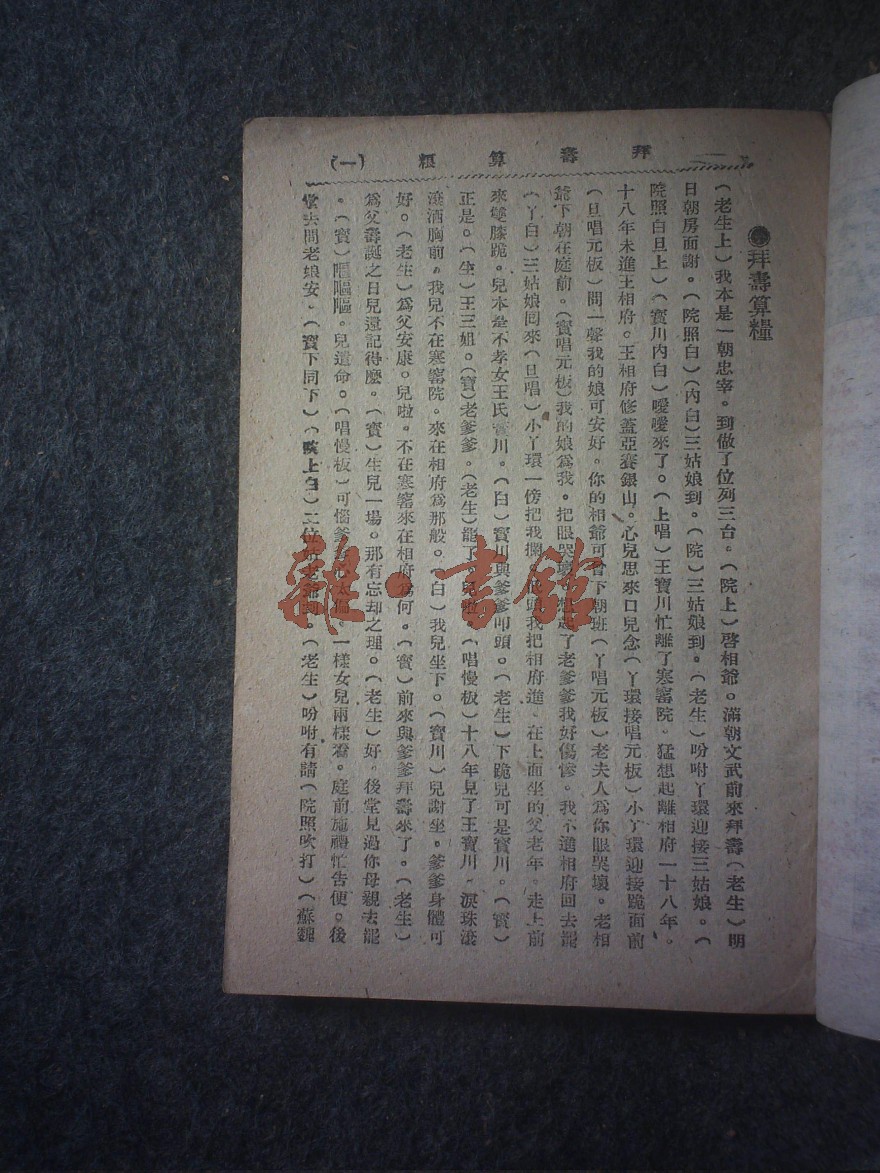 拜壽算糧 (一)
拜壽算糧
(老生上)我本是一朝忠宰。到做了位列三台。(院上)啓相爺。滿朝文武前來拜壽(老生)明
日朝房面謝。(院照白)(內白)三姑娘到。(院)三姑娘到。(老生)吩咐丫環迎接三姑娘。(
院照白旦上)(寳川內白)噯噯來了。(上唱)王寳川忙離了寒窰院。猛想起離相府一十八年。
十八年未進王相府。王相府修蓋亞賽銀山。心兒思來口兒念(丫環接唱元板)小丫環迎接跪面前
(旦唱元板)問一聲我的娘可安好。你的相爺可曾下朝班(丫唱元板)老夫人爲你眼哭壞。老相
爺下朝在庭前。(寳唱元板)我的娘爲我。把眼哭壞。想起了老爹爹我好傷慘。我不進相府回去罷
(丫白)三姑娘同來(旦唱)小丫環一傍把我攔 我把相府進。在上面坐的父老年。走上前
來雙膝跪。兒本是不孝女王氏寳川。(白)寳川與爹爹叩頭。(老生)下跪兒可是寳川。(寳)
正是。(生)王三姐。(寳)老爹爹。(老生)罷了。兒啦。(唱慢板)十八年見了王寳川。淚珠滾
滾洒胸前。我兒不在寒窰院。來在相府爲那般。(白)我兒坐下。(寳川)兒謝坐。爹爹身體可
好。(老生)爲父安康。兒啦。不在寒窰來在相府爲何。(寳)前來與爹爹拜壽來了。(老生)
爲父壽誕之日兒還記得麼。(寳)生兒一場。那有忘却之理。(老生)好。後堂見過你母親去罷
。(寳)嘔嘔嘔。兒遵命。(唱慢板)可惱爹爹心太偏。一樣女兒兩樣看。庭前施禮忙告便。後
堂去問老娘安。(寳下同下)(院上白)二位姑老爺到。(老生)吩咐有請(院照吹打)(蘇魏
雜·書館